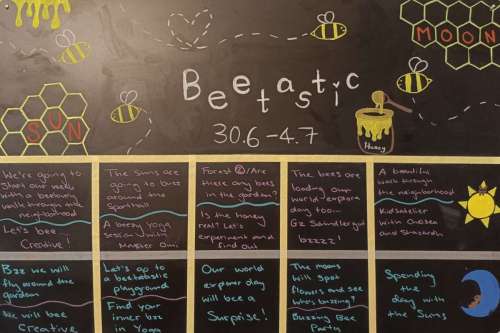 MOON
Beetastic
SUN
30.6-4.7
Honey
We're going to
start our week
with a
walk through the
neighborhood
Let's bee
Creative!
The suns are
going to buzz
around the
A beezy yoga
session with
Forest Are
there any bees
in the garden?
Is the honey
real? Let's
experiment and
find out
The bees are
loading our
world explore
day too...
bzzzz!
A beautiful
walk through
the neighborhood
with Chelsea
and
Bzz we will
fly around the
garden
We will bee
Creative
Let's go to
a beetastic
playground
Find your
inner bzz
in Yoga
Our world
explorer day
will bee a
Surprise!
The moons
will spot
flowers and see
who's buzzing?
Buzzing Bee
Party
Spending
the day
with the
Suns